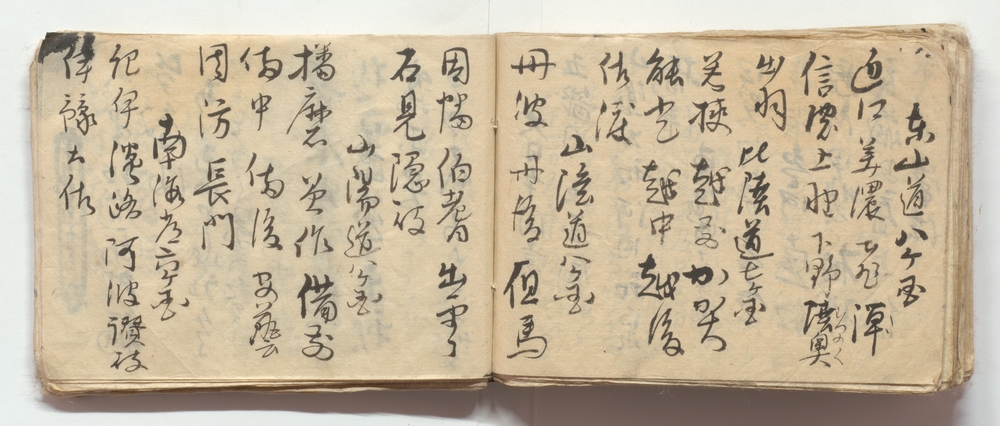 東山道八ケ国
近江 美濃 飛騨
信濃 上野 下野 陸奥
出羽
北陸道七ケ国
若狭 越前 加賀
能登 越中 越後
佐渡
山陰道八ケ国
丹波 丹後 但馬
因幡 伯耆 出雲
石見 隠岐
山陽道八ケ国
播磨 美作 備前
備中 備後 安藝
周防 長門
南海道六ケ国
紀伊 淡路 阿波 讃岐
伊豫 土佐